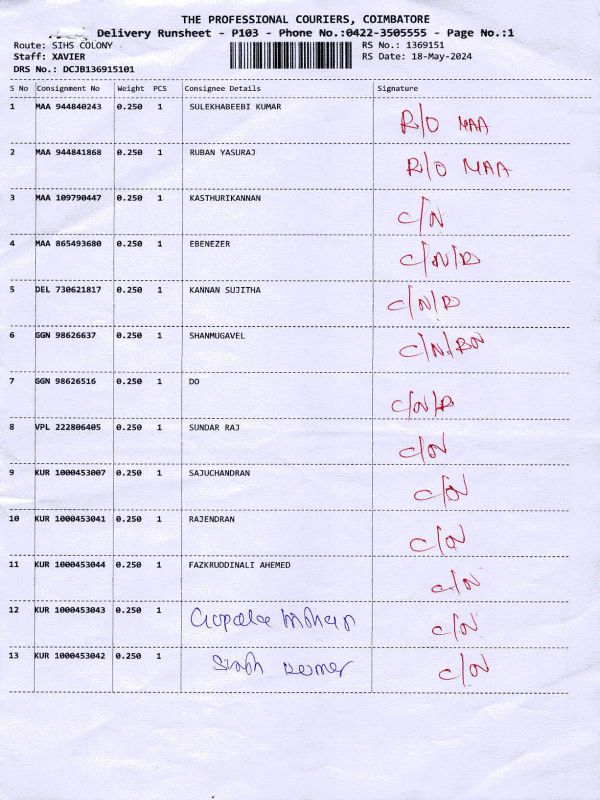 THE PROFESSIONAL COURIERS, COIMBATORE
Delivery Runsheet - P103 - Phone No.:0422-3505555 - Page No.:1
Route: SIHS COLONY RS No.: 1369151
Staff: XAVIER RS Date: 18-May-2024
DRS No.: DCJB136915101
S No Consignment No Weight PCS Consignee Details Signature
1 MAA 944840243 0.250 1 SULEKHABEEBI KUMAR R/O MAA
2 MAA 944841868 0.250 1 RUBAN YASURAJ R/O MAA
3 MAA 109790447 0.250 1 KASTHURIKANNAN C/N
4 MAA 865493680 0.250 1 EBENEZER C/N/D
5 DEL 730621817 0.250 1 KANNAN SUJITHA C/N/D
6 GGN 98626637 0.250 1 SHANMUGAVEL C/N/
7 GGN 98626516 0.250 1 DO C/N/D
8 VPL 222806405 0.250 1 SUNDAR RAJ C/N
9 KUR 1000453007 0.250 1 SAJUCHANDRAN C/N
10 KUR 1000453041 0.250 1 RAJENDRAN C/N
11 KUR 1000453044 0.250 1 FAZKRUDDINALI AHEMED C/N
12 KUR 1000453043 0.250 1 C/N
13 KUR 1000453042 0.250 1 C/N